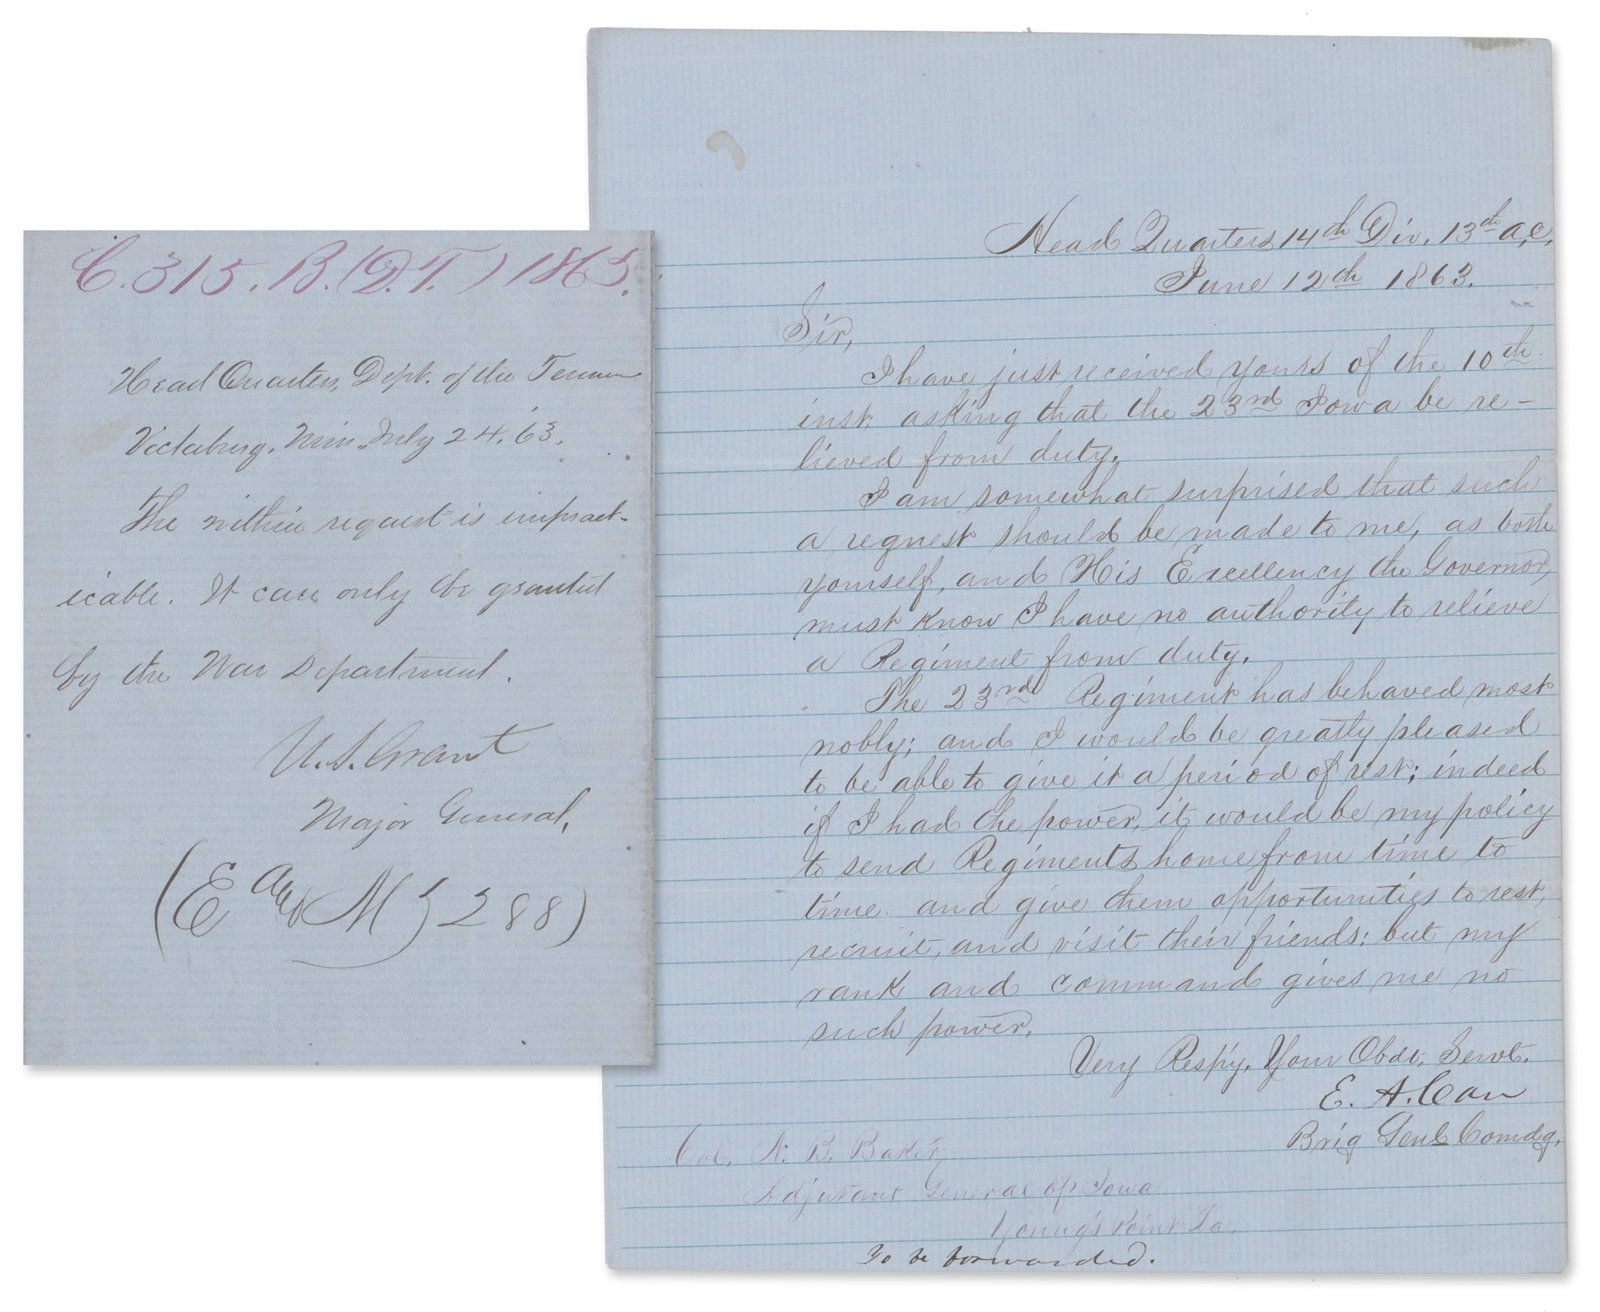 C. 315. B. (D.T.) 1863.
Head Quarters, Dept. of the Tenn
Vicksburg, Miss. July 24. '63.
The within request is impract-
icable. It can only be granted
by the War Department.
U. S. Grant
Major General,
(E M 5 288)
Head Quarters 14th Div. 13th A.C.
June 12th 1863.
Sir,
I have just received yours of the 10th
inst. asking that the 23rd Iowa be re-
lieved from duty.
I am somewhat surprised that such
a request should be made to me, as both
yourself, and His Excellency the Governor,
must know I have no authority to relieve
a Regiment from duty.
The 23rd Regiment has behaved most
nobly; and I would be greatly pleased
to be able to give it a period of rest; indeed
if I had the power, it would be my policy
to send Regiments home from time to
time. and give them opportunities to rest,
recruit, and visit their friends: but my
rank and command gives me no
such power.
Very Respy. Your Obdt. Servt.
E. A. Carr
Brig Genl Comdg.
Col. N. B. Baker,
Adjutant General of Iowa
Young's Point La.
To be forwarded.